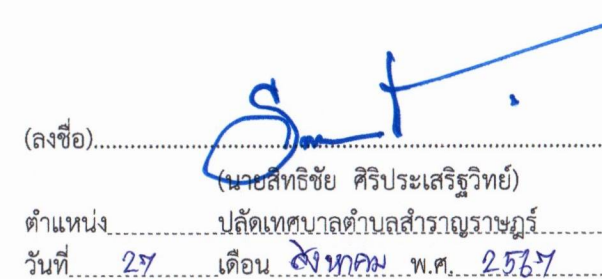 (ลงชื่อ)
(นายสิทธิชัย ศิริประเสริฐวิทย์)
ตำแหน่ง ปลัดเทศบาลตำบลสำราญราษฎร์
วันที่ 27 เดือน สิงหาคม พ.ศ. 2567